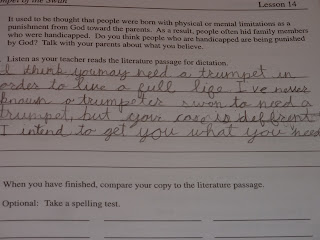 Trumpet of the Swan
Lesson 14
It used to be thought that people were born with physical or mental limitations as a
punishment from God toward the parents. As a result, people often hid family members
who were handicapped. Do you think people who are handicapped are being punished
by God? Talk with your parents about what you believe.
Listen as your teacher reads the literature passage for dictation.
I think you may need a trumpet in
order to live a full life. I've never
known a trumpeter swan to need a
trumpet, but your case is different
I intend to get you what you need
When you have finished, compare your copy to the literature passage.
Optional: Take a spelling test.